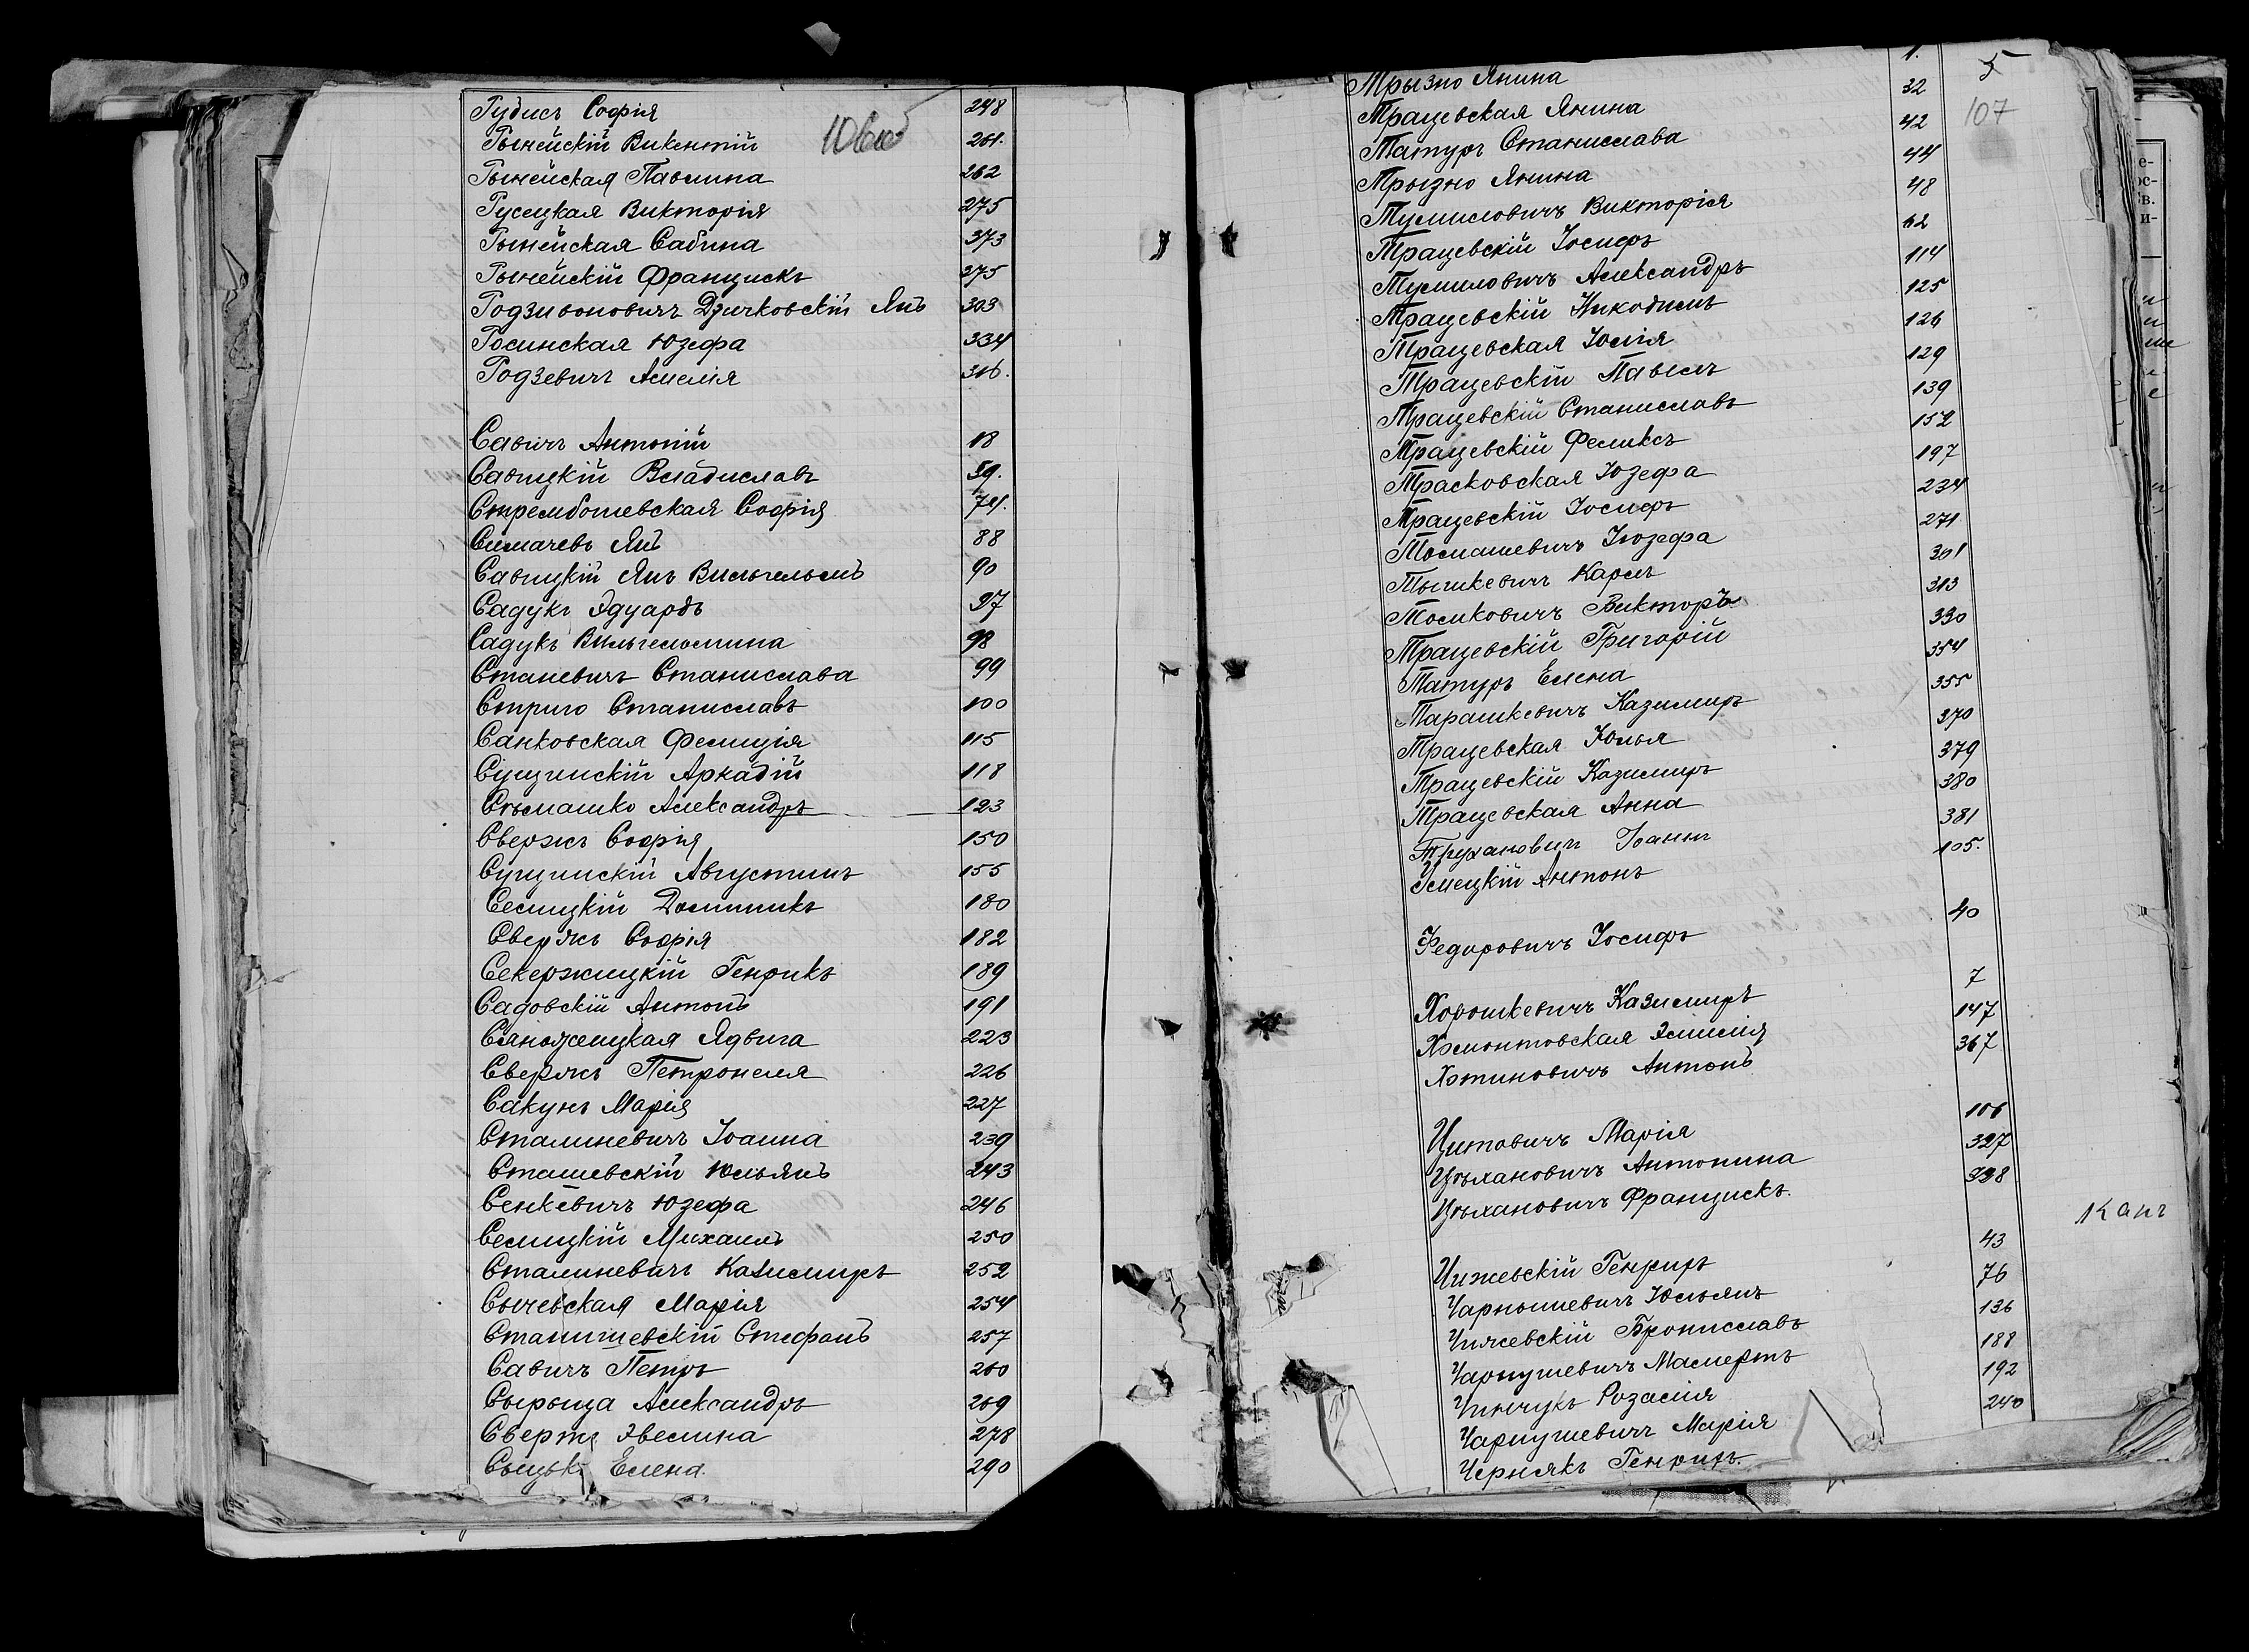 Рудисъ Софія 248
Рынейскій Викентій 261.
Рынейская Павлина 262
Русецкая Викторія 275
Рынейская Сабина 373
Рынейскій Францискъ 275
Родзивоновичъ Дзичковскій Янъ 303
Росинская Юзефа 334
Родзевичъ Амелія 316.
Савичъ Антоній 18
Савицкій Владиславъ 59.
Стремболевская Софія 74.
Симачевъ Янъ 88
Савицкій Янъ Вильгельмъ 90
Садукъ Эдуардъ 97
Садукъ Вильгельмина 98
Станевичъ Станислава 99
Стриго Станиславъ 100
Санковская Фелиція 115
Сущинскій Аркадій 118
Стьмашко Александръ 123
Свержъ Софія 150
Сущинскій Августинъ 155
Селицкій Доминикъ 180
Свержъ Софія 182
Секержицкій Генрикъ 189
Садовскій Антонъ 191
Сяножецкая Ядвига 223
Свержъ Петронеля 226
Сакунъ Марія 227
Сталиневичъ Іоанна 239
Сташевскій Юльянъ 243
Сенкевичъ Юзефа 246
Селицкій Михаилъ 250
Сталиневичъ Казимиръ 252
Сычевская Марія 254
Станишевскій Стефанъ 257
Савичъ Петръ 260
Сырыца Александръ 269
Свержъ Эвелина 278
Сыцькъ Елена 290
5
107
Трызно Янина 1.
Трацевская Янина 32
Татуръ Станислава 42
Трызно Янина 44
Тумиловичъ Викторія 48
Трацевскій Іосифъ 62
Тумиловичъ Александръ 114
Трацевскій Никодимъ 125
Трацевская Юлія 126
Трацевскій Павелъ 129
Трацевскій Станиславъ 139
Трацевскій Феликсъ 152
Трасковская Юзефа 197
Трацевскій Іосифъ 234
Томашевичъ Іюзефа 271
Тышкевичъ Карлъ 301
Толковичъ Викторъ 313
Трацевскій Григорій 330
Татуръ Елена 354
Тарашкевичъ Казимиръ 355
Трацевская Юлья 370
Трацевскій Казимиръ 379
Трацевская Анна 380
Трухановичъ Іоаннъ 381
Улецкій Антонъ 105.
Федоровичъ Іосифъ 40
Хорошкевичъ Казимиръ 7
Хомонтовская Эмилія 147
Хотиновичъ Антонъ 367
Цитовичъ Марія 106
Цѣхановичъ Антонина 327
Цѣхановичъ Францискъ. 328
Канг
Чижевскій Генрихъ 43
Чарнышевичъ Юльянъ 76
Чижевскій Брониславъ 136
Чарнушевичъ Мамертъ 188
Чинчукъ Розалія 192
Чарнушевичъ Марія 240
Чернякъ Генрихъ.